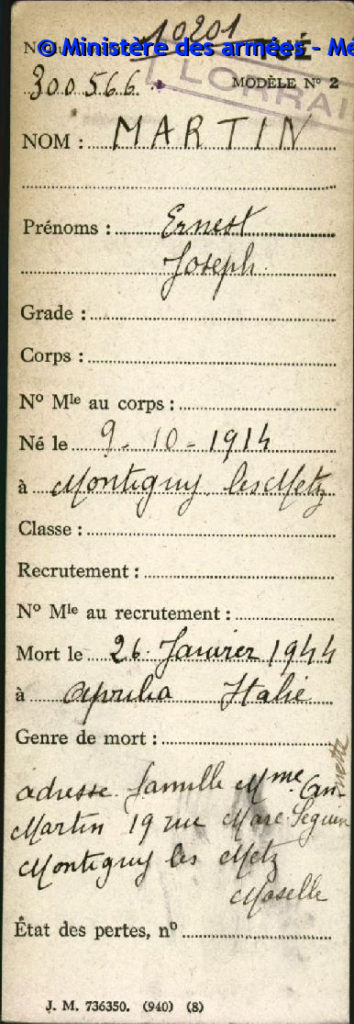 10201
© Ministère des armées - Mé
LORRAI
300566
MODÈLE Nº 2
NOM : MARTIN
Prénoms : Ernest
Joseph
Grade :
Corps :
Nº Mle au corps :
Né le 9-10-1914
à Montigny les Metz
Classe :
Recrutement :
Nº Mle au recrutement :
Mort le 26 Janvier 1944
à Aprilia Italie
Genre de mort :
adresse famille Mme
Martin 19 rue Marc Seguin
Montigny les Metz
Moselle
État des pertes, nº
J. M. 736350. (940) (8)